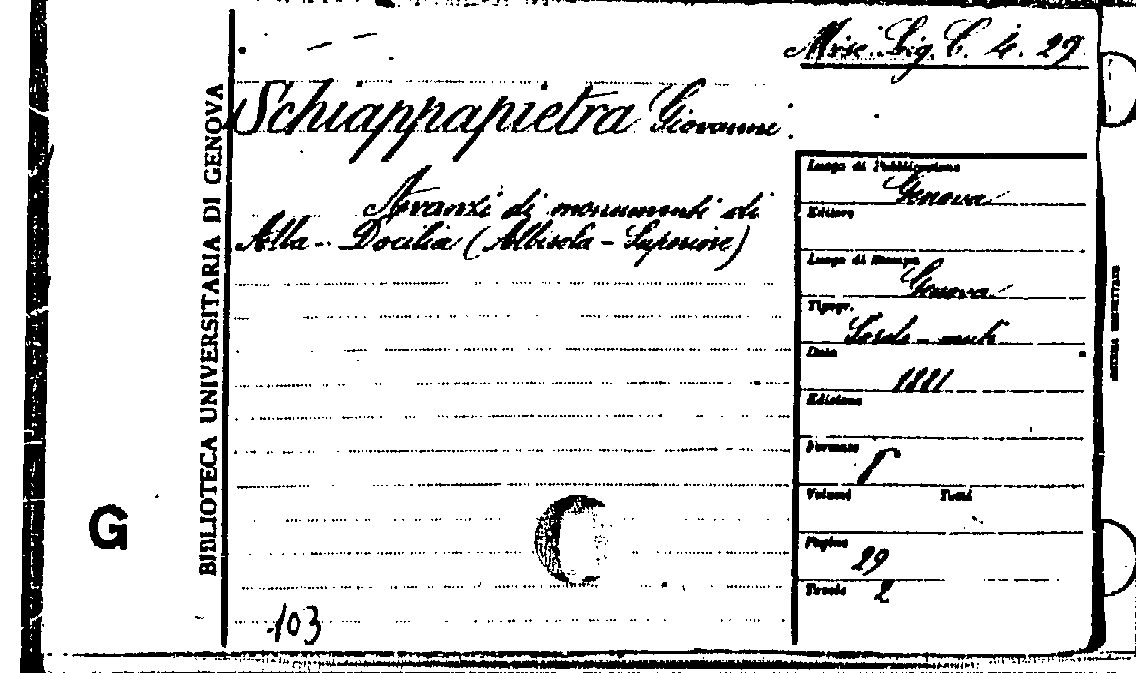 Misc. Lig. C. 4. 29
Schiappapietra Giovanni
Avanzi di monumenti di
Alba-Docilia (Albisola-Superiore)
BIBLIOTECA UNIVERSITARIA DI GENOVA
G
103
Luogo di Pubblicazione
Genova
Editore
Luogo di Stampa
Genova
Tipogr.
Sordo-muti
Data
1881
Edizione
Formato
8
Volumi Tomi
Pagine
29
Tavole 2